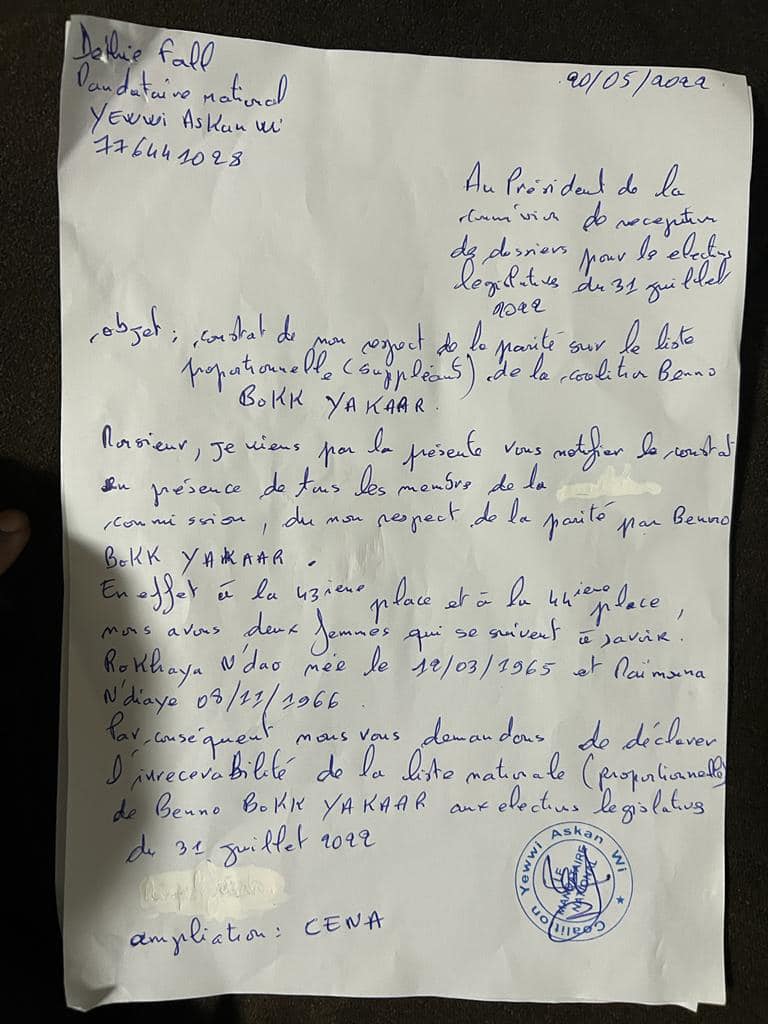 Dethie Fall
Mandataire national
YEWWI ASKan Wi
776441028
20/05/2022
Au Président de la
commission de reception
de dossiers pour le elections
legislatives du 31 juillet
2022
objet : constat de non respect de la parité sur le liste
proportionnelle (suppléant) de la coalition Benno
BOKK YAKAAR.
Monsieur, je viens par la présente vous notifier le constat
en présence de tous les membre de la
commission, du non respect de la parité par Benno
BOKK YAKAAR.
En effet à la 43ieme place et à la 44ieme place,
nous avons deux femmes qui se suivent à savoir.
Rokhaya N'dao née le 12/03/1965 et Maïmouna
N'diaye 08/11/1966.
Par conséquent nous vous demandons de déclarer
l'irrecevabilité de la liste nationale (proportionnelle)
de Benno BOKK YAKAAR aux elections legislatives
du 31 juillet 2022
ampliation : CENA
Coalition Yewwi Askan Wi
LE
MANDATAIRE
NATIONAL